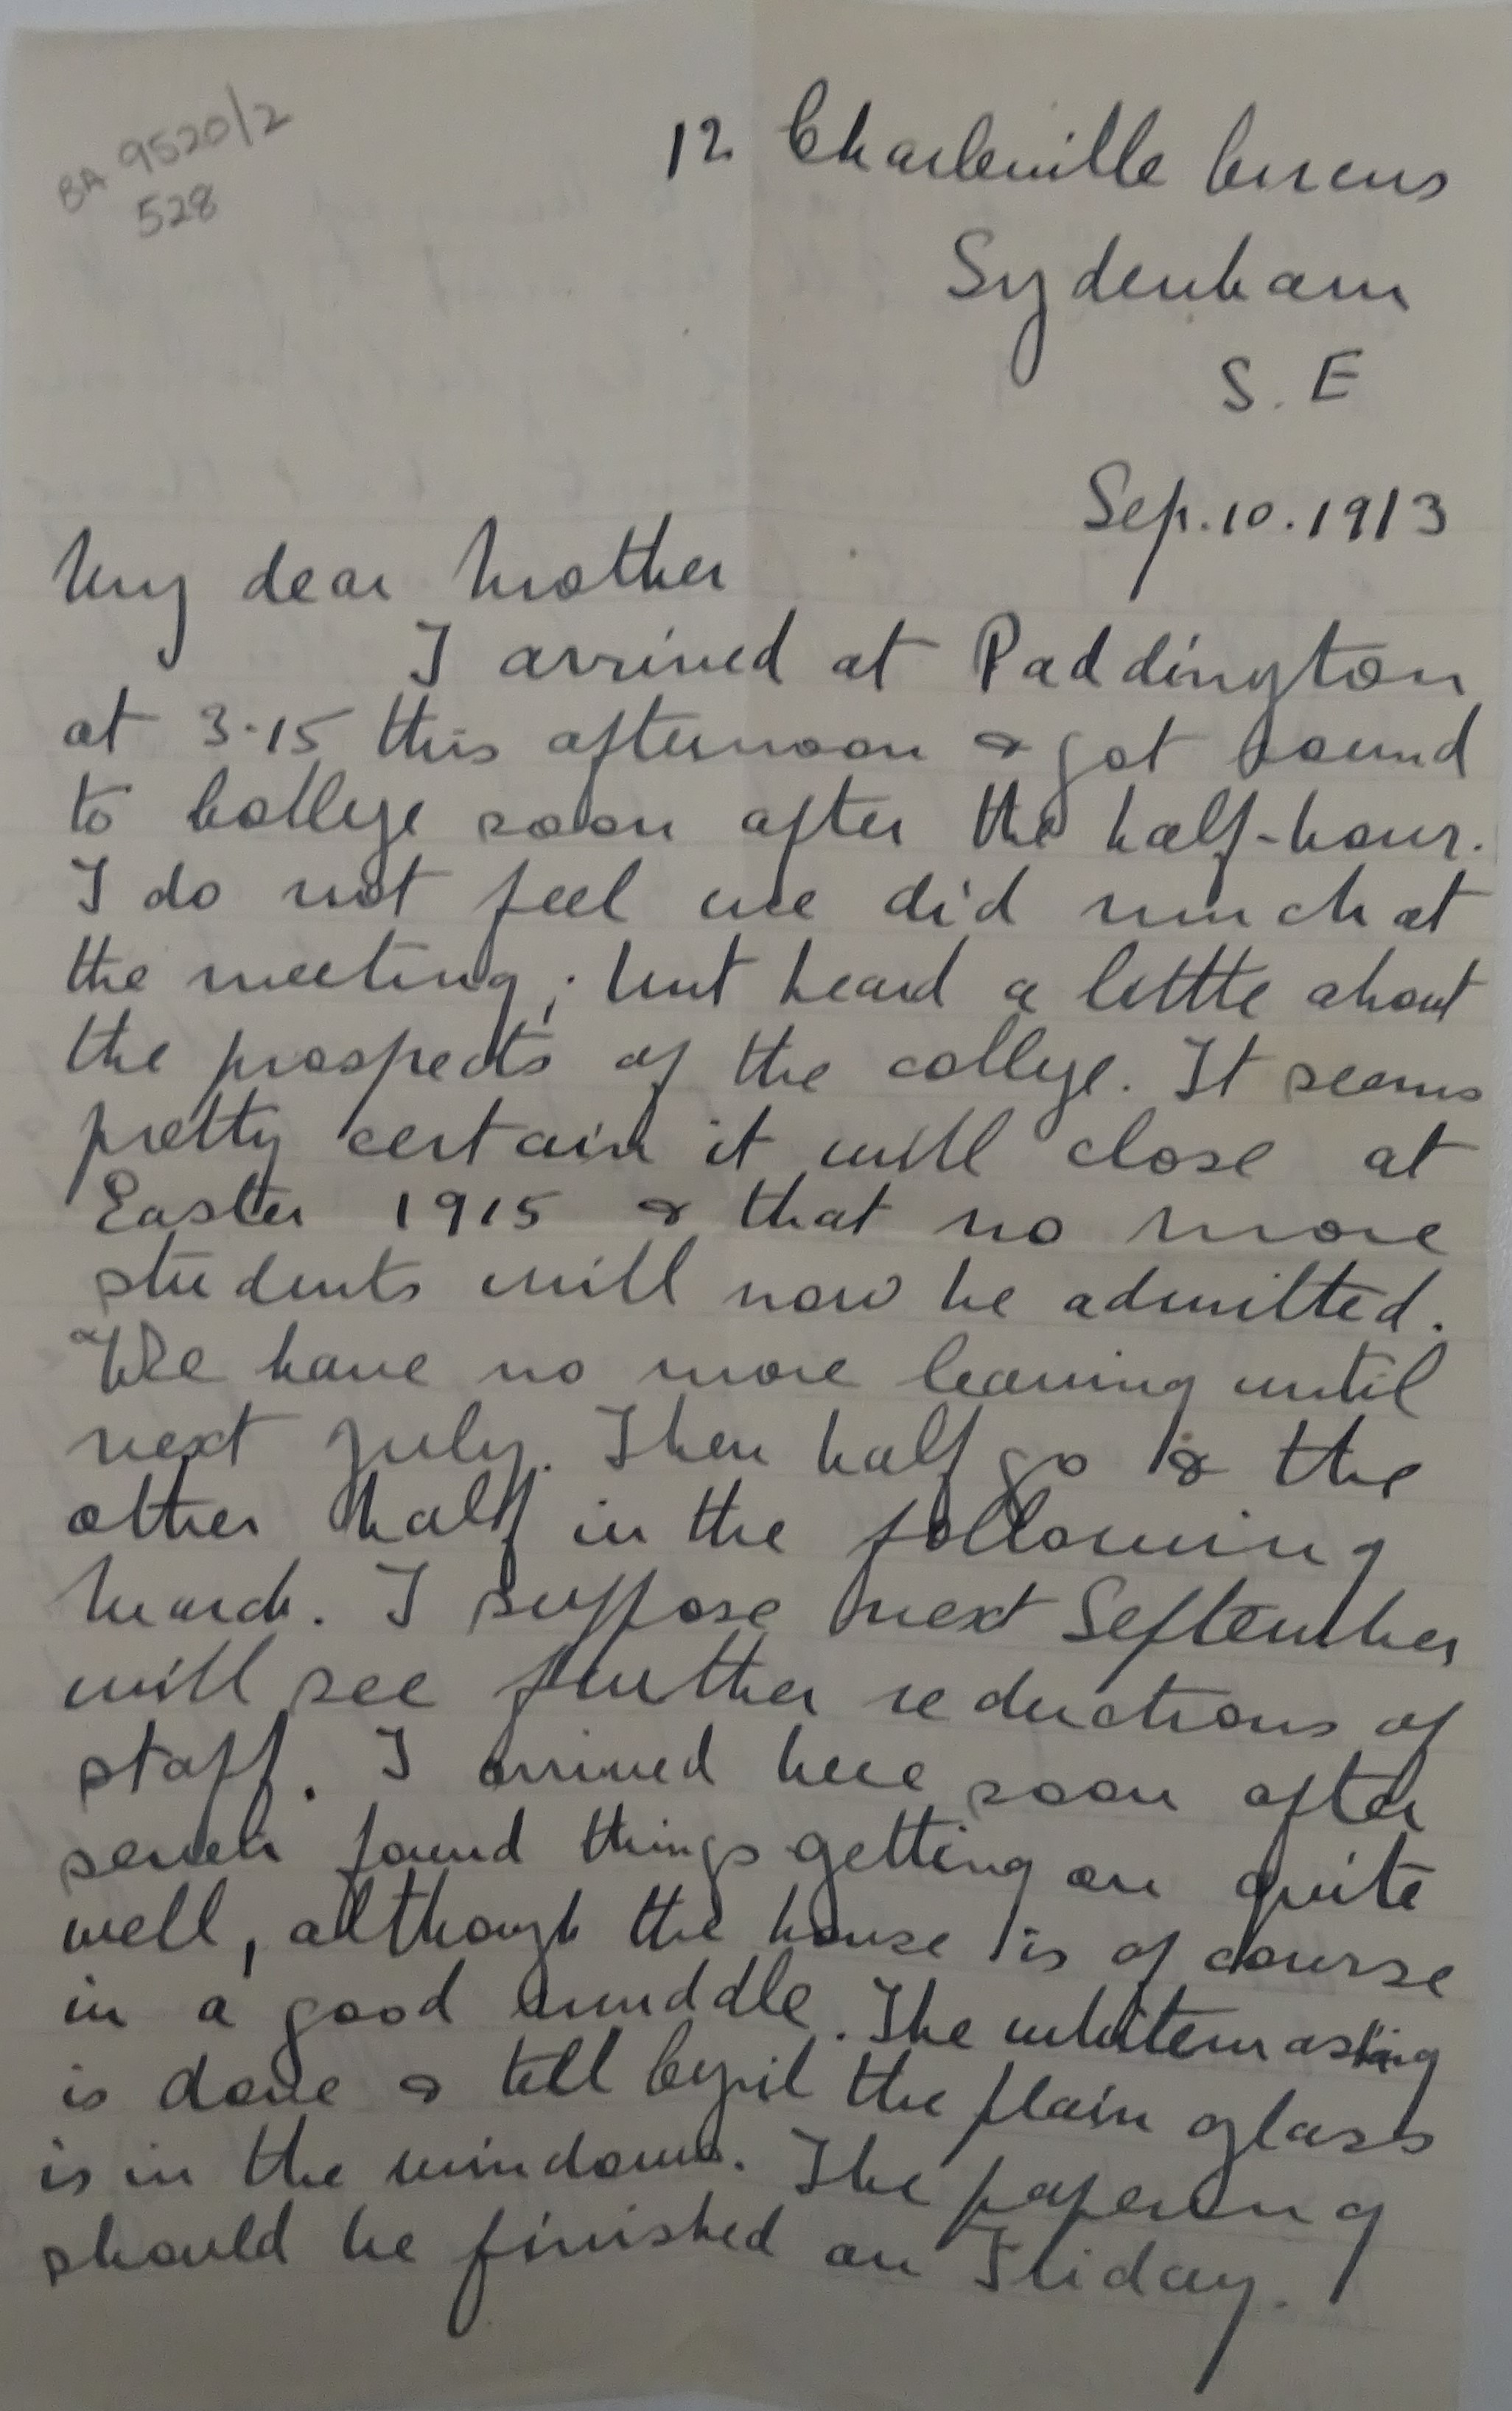 BA 9520/2
528
12 Charleville Circus
Sydenham
S. E
Sep. 10. 1913
My dear Mother
I arrived at Paddington
at 3.15 this afternoon & got round
to College soon after the half-hour.
I do not feel we did much at
the meeting; but heard a little about
the prospects of the college. It seems
pretty certain it will close at
Easter 1915 & that no more
students will now be admitted.
We have no more leaving until
next July. Then half go & the
other half in the following
March. I suppose next September
will see further reductions of
staff. I arrived here soon after
seven found things getting on quite
well, although the house is of course
in a good muddle. The whitewashing
is done & tell Cyril the plain glass
is in the windows. The papering
should be finished on Friday.